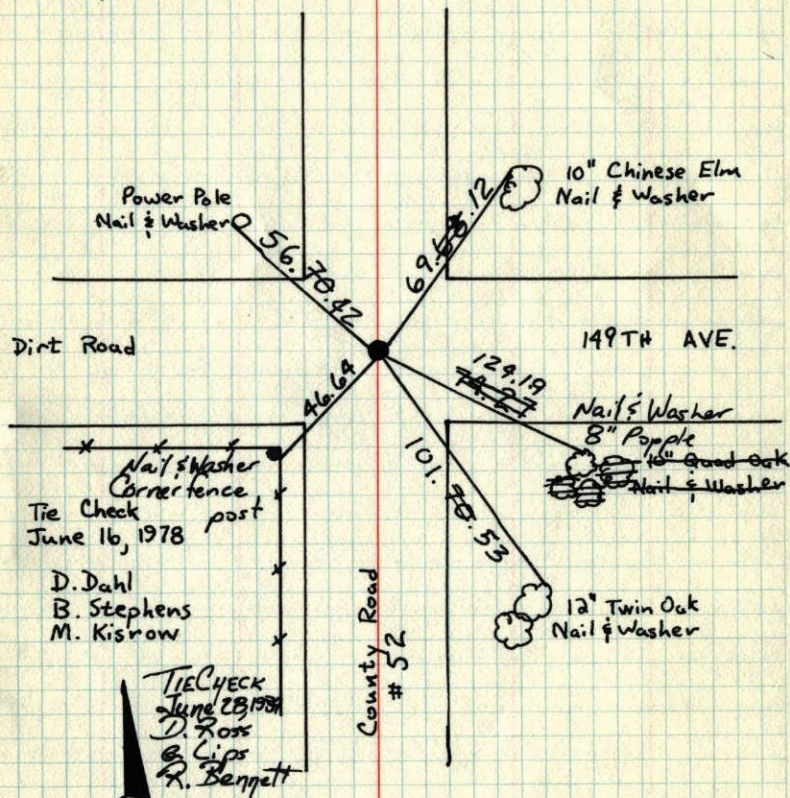 Power Pole
Nail & Washer
10" Chinese Elm
Nail & Washer
56.70.42
69.58.12
Dirt Road
149TH AVE.
46.64
124.19
74.27
Nail & Washer
8" Popple
10" Quad Oak
Nail & Washer
Nail & Washer
Corner fence
post
101.70.53
Tie Check
June 16, 1978
D. Dahl
B. Stephens
M. Kisrow
12" Twin Oak
Nail & Washer
County Road
#52
TIE CHECK
June 28,
D. Ross
Lips
R. Bennett